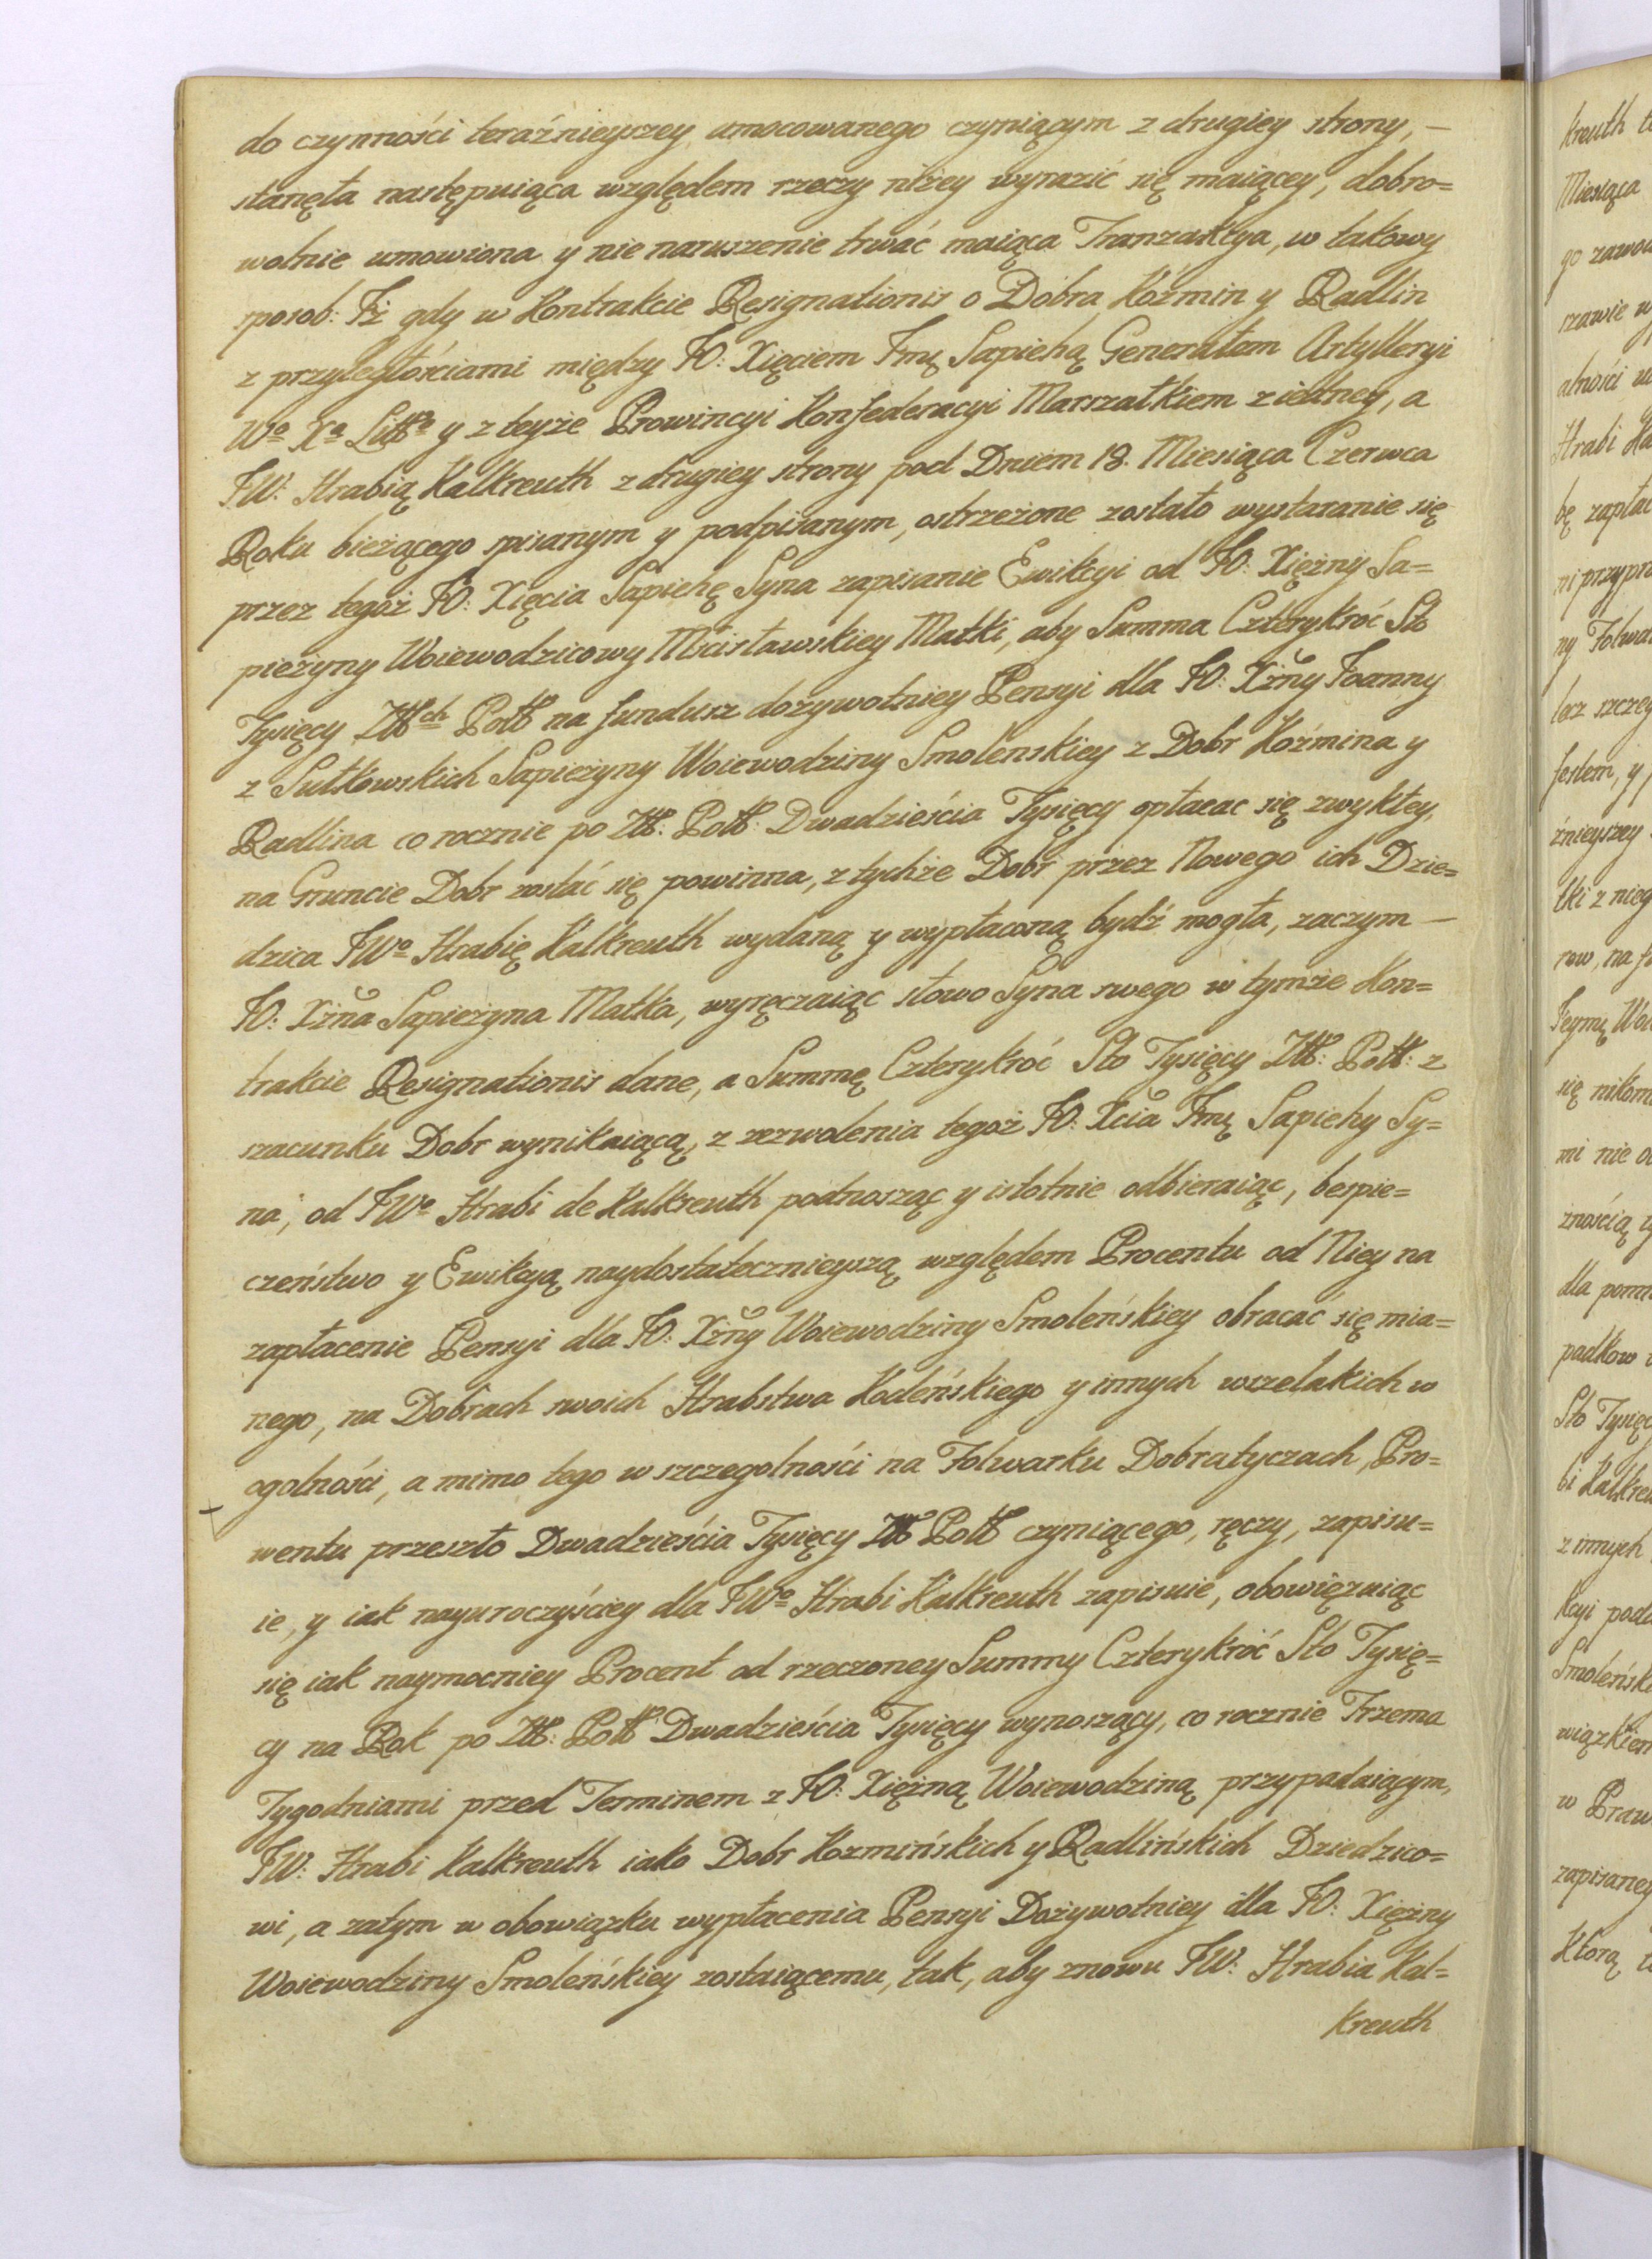 do czynności teraźnieyszey umocowanego czyniącym z drugiey strony, —
stanęła następuiąca względem rzeczy niżey wyrazić się maiącey, dobro=
wolnie umowiona y nie naruszenie trwać maiąca Tranzakcya, w takowy
sposob: Iż gdy w Kontrakcie Resignationis o Dobra Koźmin y Radlin
z przyległościami między JO: Xięciem Jmę Sapiehą Generałem Artylleryi
Wo Xa Litto y z teyże Prowincyi Konfederacyi Marszałkiem z iedney, a
JW: Hrabią Kalkreuth z drugiey strony pod Dniem 18. Miesiąca Czerwca
Roku bieżącego spisanym y podpisanym, ostrzeżone zostało wystaranie się
przez tegoż JO: Xięcia Sapiehę Syna zapisanie Ewikcyi od JO: Xiężny Sa=
pieżyny Woiewodzicowy Mścisławskiey Matki, aby Summa Czterykróć Sto
Tysięcy Złłch Poll na fundusz dożywotniey Pensyi dla JO: Xżny Joanny
z Sułkowskich Sapieżyny Woiewodziny Smolenskiey z Dobr Koźmina y
Radlina co rocznie po Złł: Poll: Dwadzieścia Tysięcy opłacac się zwykłey,
na Gruncie Dobr zostać się powinna, z tychże Dobr przez Nowego ich Dzie=
dzica JWo Hrabię Kalkreuth wydaną y wypłaconą bydź mogła, zaczym —
JO: Xżna Sapieżyna Matka, wyręczaiąc słowo Syna swego w tymże Kon=
trakcie Resignationis dane, a Summę Czterykróć Sto Tysięcy Złł: Poll: z
szacunku Dobr wynikaiącą, z zezwolenia tegoż JO: Xcia Jmę Sapiehy Sy=
na, od JWo Hrabi de Kalkreuth podnosząc y istotnie odbieraiąc, bespie=
czeństwo y Ewikcyą naydostatecznieyszą względem Procentu od Niey na
zapłacenie Pensyi dla JO: Xżny Woiewodziny Smoleńskiey obracać się mia=
nego, na Dobrach swoich Hrabstwa Kodeńskiego y innych wszelakich w
ogolności, a mimo tego w szczegolności na Folwarku Dobratyczach, Pro=
wentu przeszło Dwadzieścia Tysięcy Złł Poll czyniącego, ręczy, zapisu=
ie, y iak nayuroczyściey dla JWo Hrabi Kalkreuth zapisuie, obowięzuiąc
się iak naymocniey Procent od rzeczoney Summy Czterykróć Sto Tysię=
cy na Rok po Złł: Poll Dwadzieścia Tysięcy wynoszący, co rocznie Trzema
Tygodniami przed Terminem z JO: Xiężną Woiewodziną przypadaiącym,
JW: Hrabi Kalkreuth iako Dobr Kozmińskich y Radlińskich Dziedzico=
wi, a zatym w obowiązku wypłacenia Pensyi Dożywotniey dla JO: Xiężny
Woiewodziny Smoleńskiey zostaiącemu, tak, aby znowu JW: Hrabia Kal=
kreuth